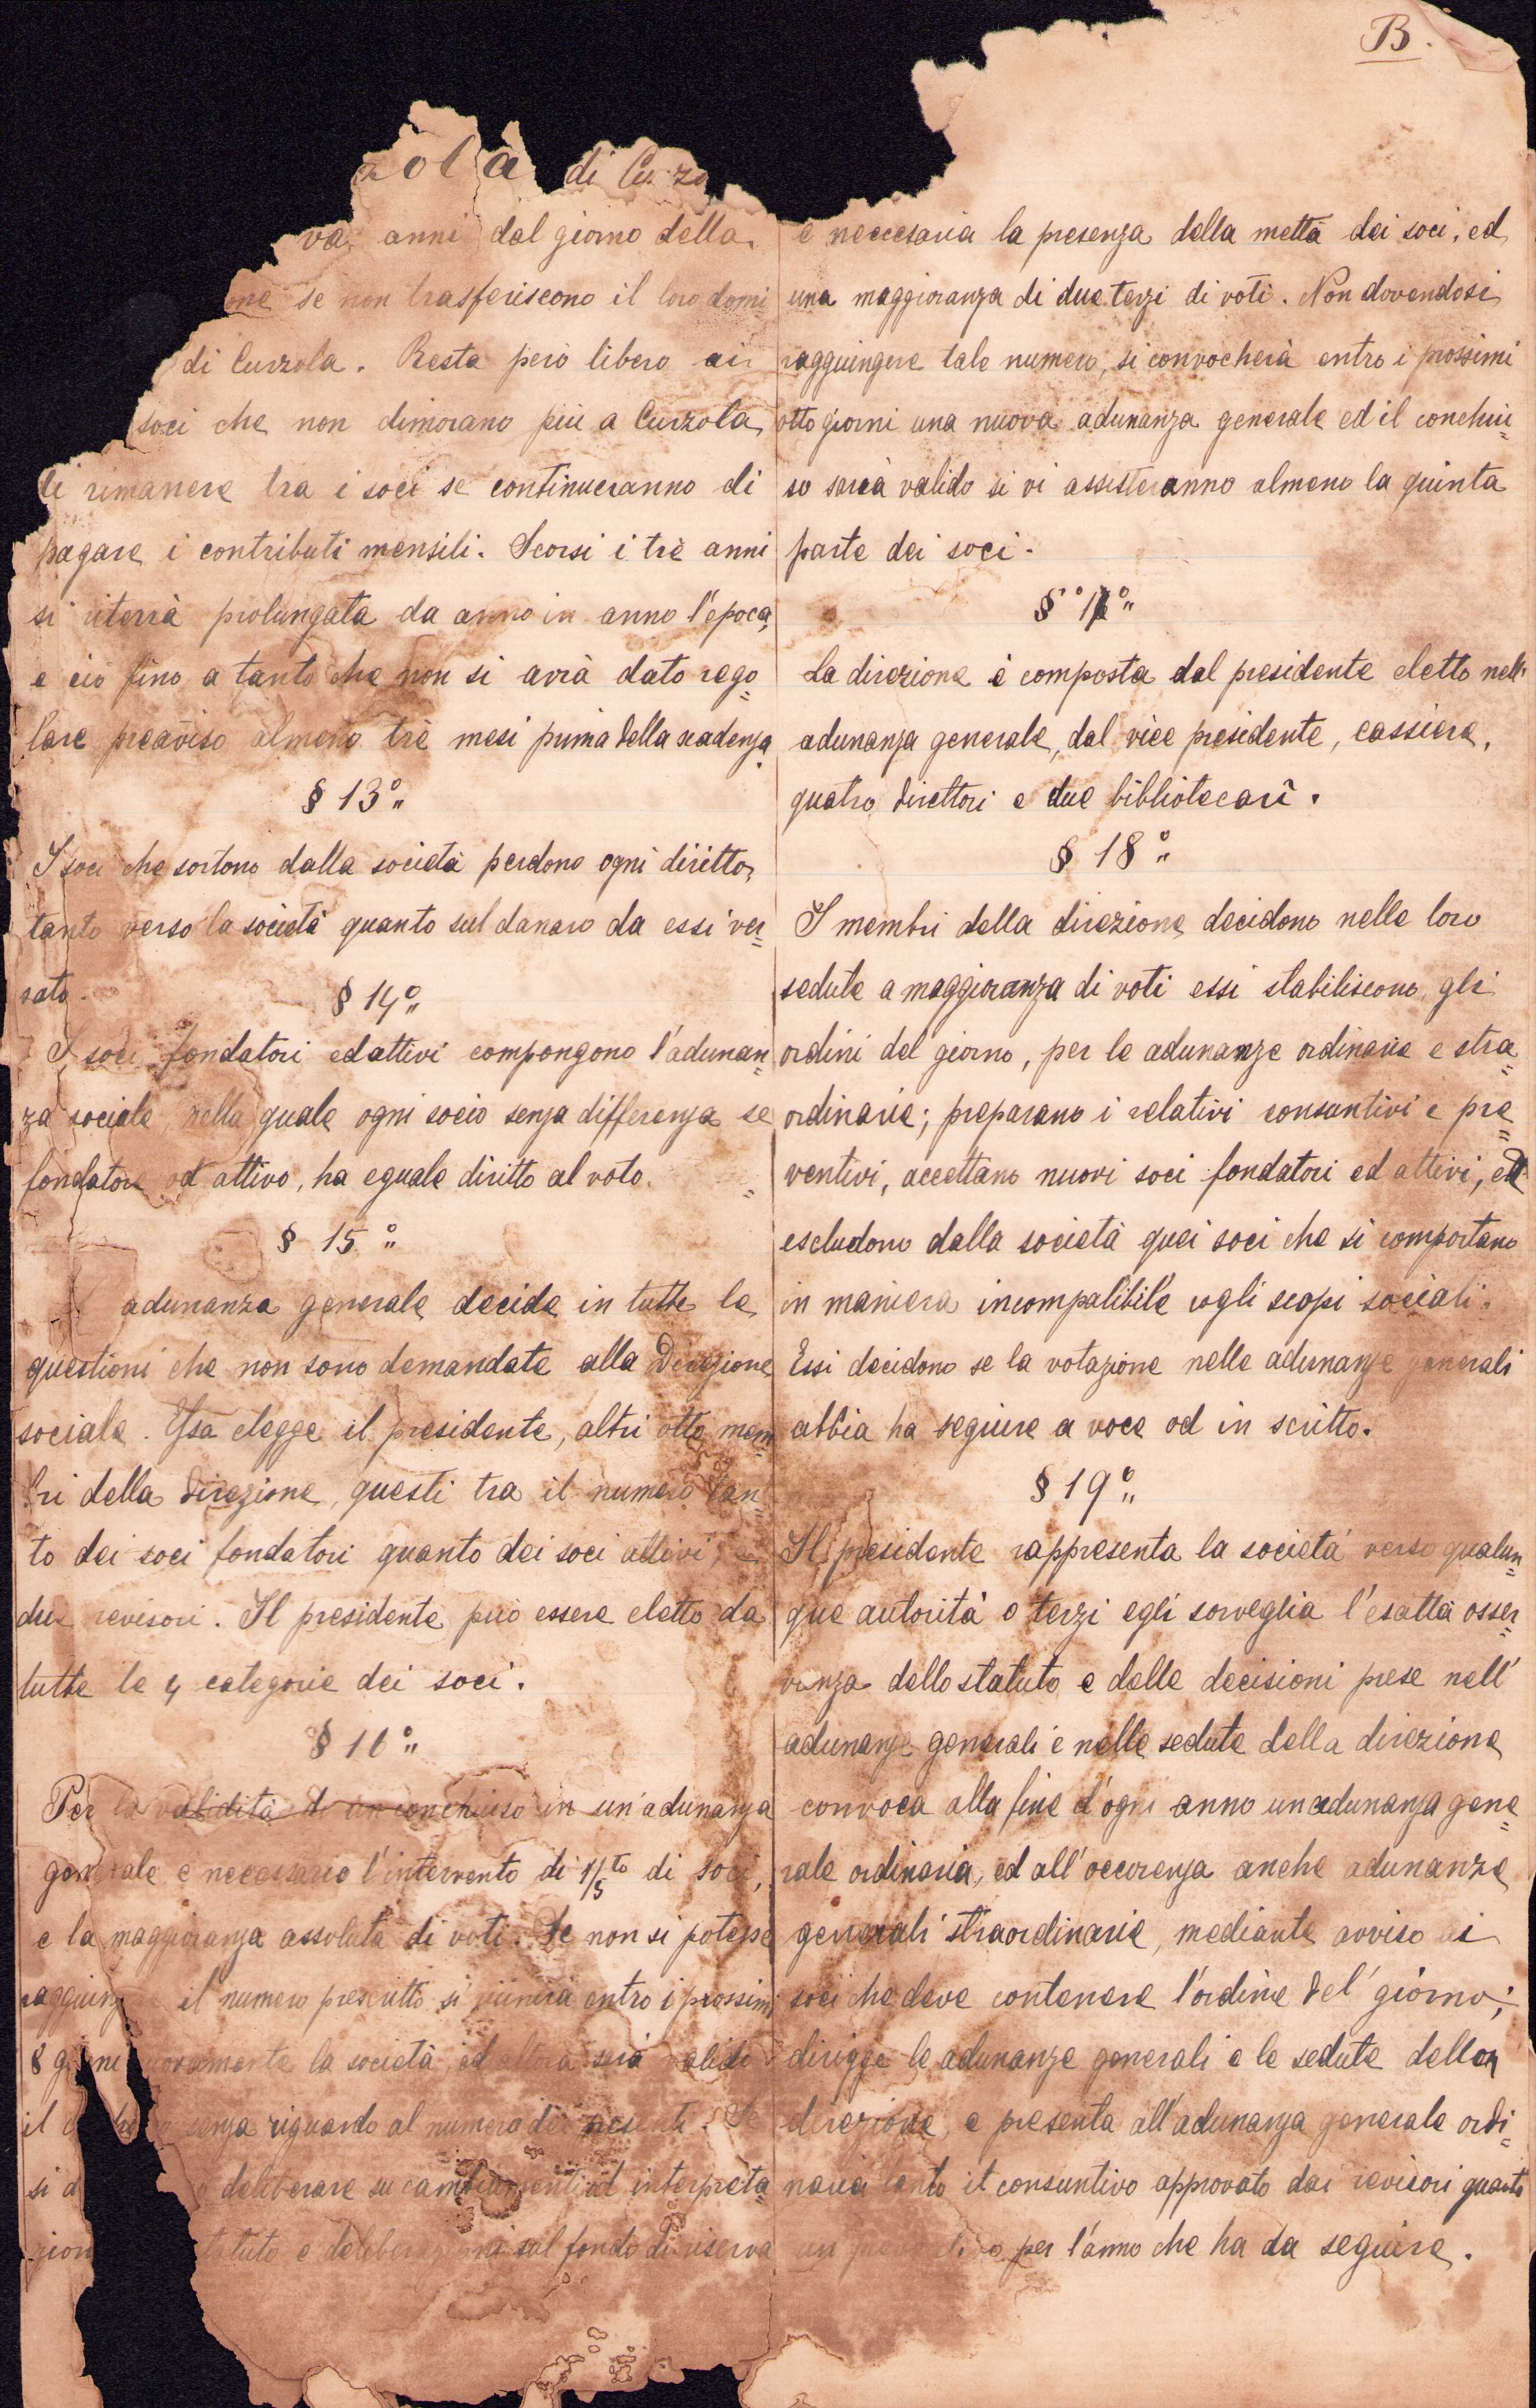 B.
zola di Curzo
va anni dal giorno della
one se non trasferiscono il loro domi
di Curzola. Resta però libero ai
soci che non dimorano più a Curzola,
di rimanere tra i soci se continueranno di
pagare i contributi mensili. Scorsi i trè anni
si riterrà prolungata da anno in anno l'epoca,
e ciò fino a tanto che non si avrà dato rego=
lare preaviso almeno trè mesi prima della scadenza.
§ 13°"
I soci che sortono dalla società perdono ogni diritto,
tanto verso la società quanto sul danaro da essi ver=
sato.
§ 14°"
I soci fondatori ed attivi compongono l'adunan=
za sociale, nella quale ogni socio senza differenza se
fondatore od attivo, ha eguale diritto al voto.
§ 15°"
adunanza generale decide in tutte le
questioni che non sono demandate alla Direzione
sociale. Essa elegge il presidente, altri otto mem=
bri della Direzione, questi tra il numero tan=
to dei soci fondatori quanto dei soci attivi, e
due revisori. Il presidente può essere eletto da
tutte le 4 categorie dei soci.
§ 16°"
Per la validità di un conchiuso in un'adunanza
generale è necessario l'intervento di 1/5to di soci,
e la maggioranza assoluta di voti. Se non si potesse
raggiung il numero prescritto si riunirà entro i prossimi
8 giorni nuovamente la società ed allora sarà valido
il senza riguardo al numero dei presenti. Se
si d deliberare su cambiamenti ed interpreta=
zion tatuto e deliberazioni sul fondo di riserva
è neccesaria la presenza della mettà dei soci, ed
una maggioranza di due terzi di voti. Non dovendosi
ragguingere tale numero, si convocherà entro i prossimi
otto giorni una nuova adunanza generale ed il conchiu=
so sarà valido si vi assisteranno almeno la quinta
parte dei soci.
§ 17°"
La direzione è composta dal presidente eletto nell'
adunanza generale, dal vice presidente, cassiere,
quatro direttori e due bibliotecari.
§ 18°"
I membri della direzione decidono nelle loro
sedute a maggioranza di voti essi stabiliscono gli
ordini del giorno, per le adunanze ordinarie e stra=
ordinarie; preparano i relativi consuntivi e pre=
ventivi, accettano nuovi soci fondatori ed attivi, ed
escludono dalla società quei soci che si comportano
in maniera incompatibile cogli scopi sociali.
Essi decidono se la votazione nelle adunanze generali
abbia ha seguire a voce od in scritto.
§ 19°"
Il presidente rappresenta la società verso qualun=
que autorità o terzi egli sorveglia l'esatta osser=
vanza dello statuto e delle decisioni prese nell'
adunanze generali e nelle sedute della direzione
convoca alla fine d'ogni anno un adunanza gene=
rale ordinaria, ed all'occorenza anche adunanze
generali straordinarie, mediante avviso ai
soci che deve contenere l'ordine del' giorno;
dirigge le adunanze generali e le sedute della
direzione, e presenta all'adunanza generale ordi=
naria tanto il consuntivo approvato dai revisori quanto
un per l'anno che ha da seguire.